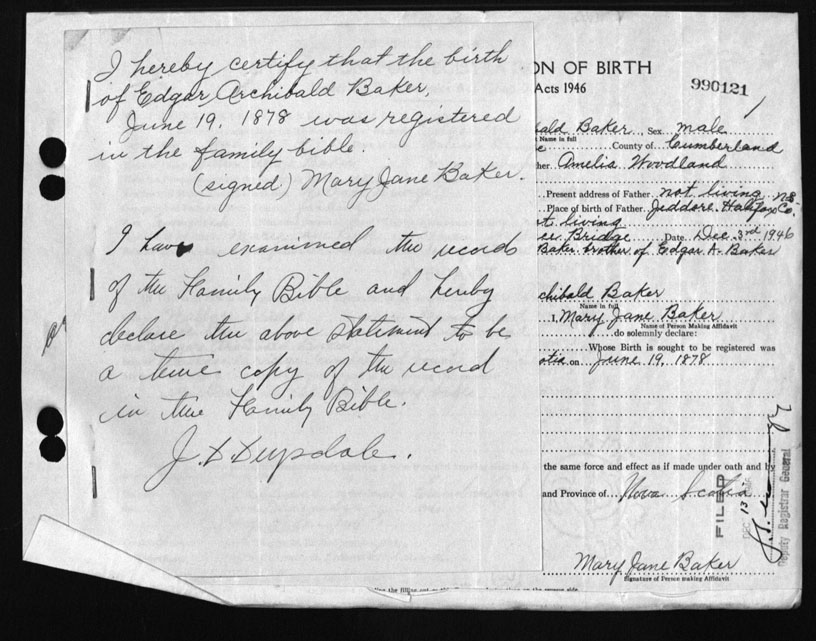 I hereby certify that the birth
of Edgar Archibald Baker,
June 19, 1878 was registered
in the family bible
(signed) Mary Jane Baker.
I have examined the records
of the Family Bible and hereby
declare the above statement to be
a true copy of the record
in the Family Bible.
ON OF BIRTH
Acts 1946
990121
bald Baker Sex male
Name in full
County of Cumberland
her Amelia Woodland
Present address of Father not living
Place of birth of Father Jeddore Halifax Co. NS
t living
Bridge Date Dec 3rd 1946
Baker brother of Edgar A. Baker
chibald Baker
Name in full
I, Mary Jane Baker
Name of Person Making Affidavit
do solemnly declare:
Whose Birth is sought to be registered was
otia on June 19, 1878
the same force and effect as if made under oath and by
and Province of Nova Scotia
FILED
DEC 13
Deputy Registrar General
Mary Jane Baker
Signature of Person making Affidavit